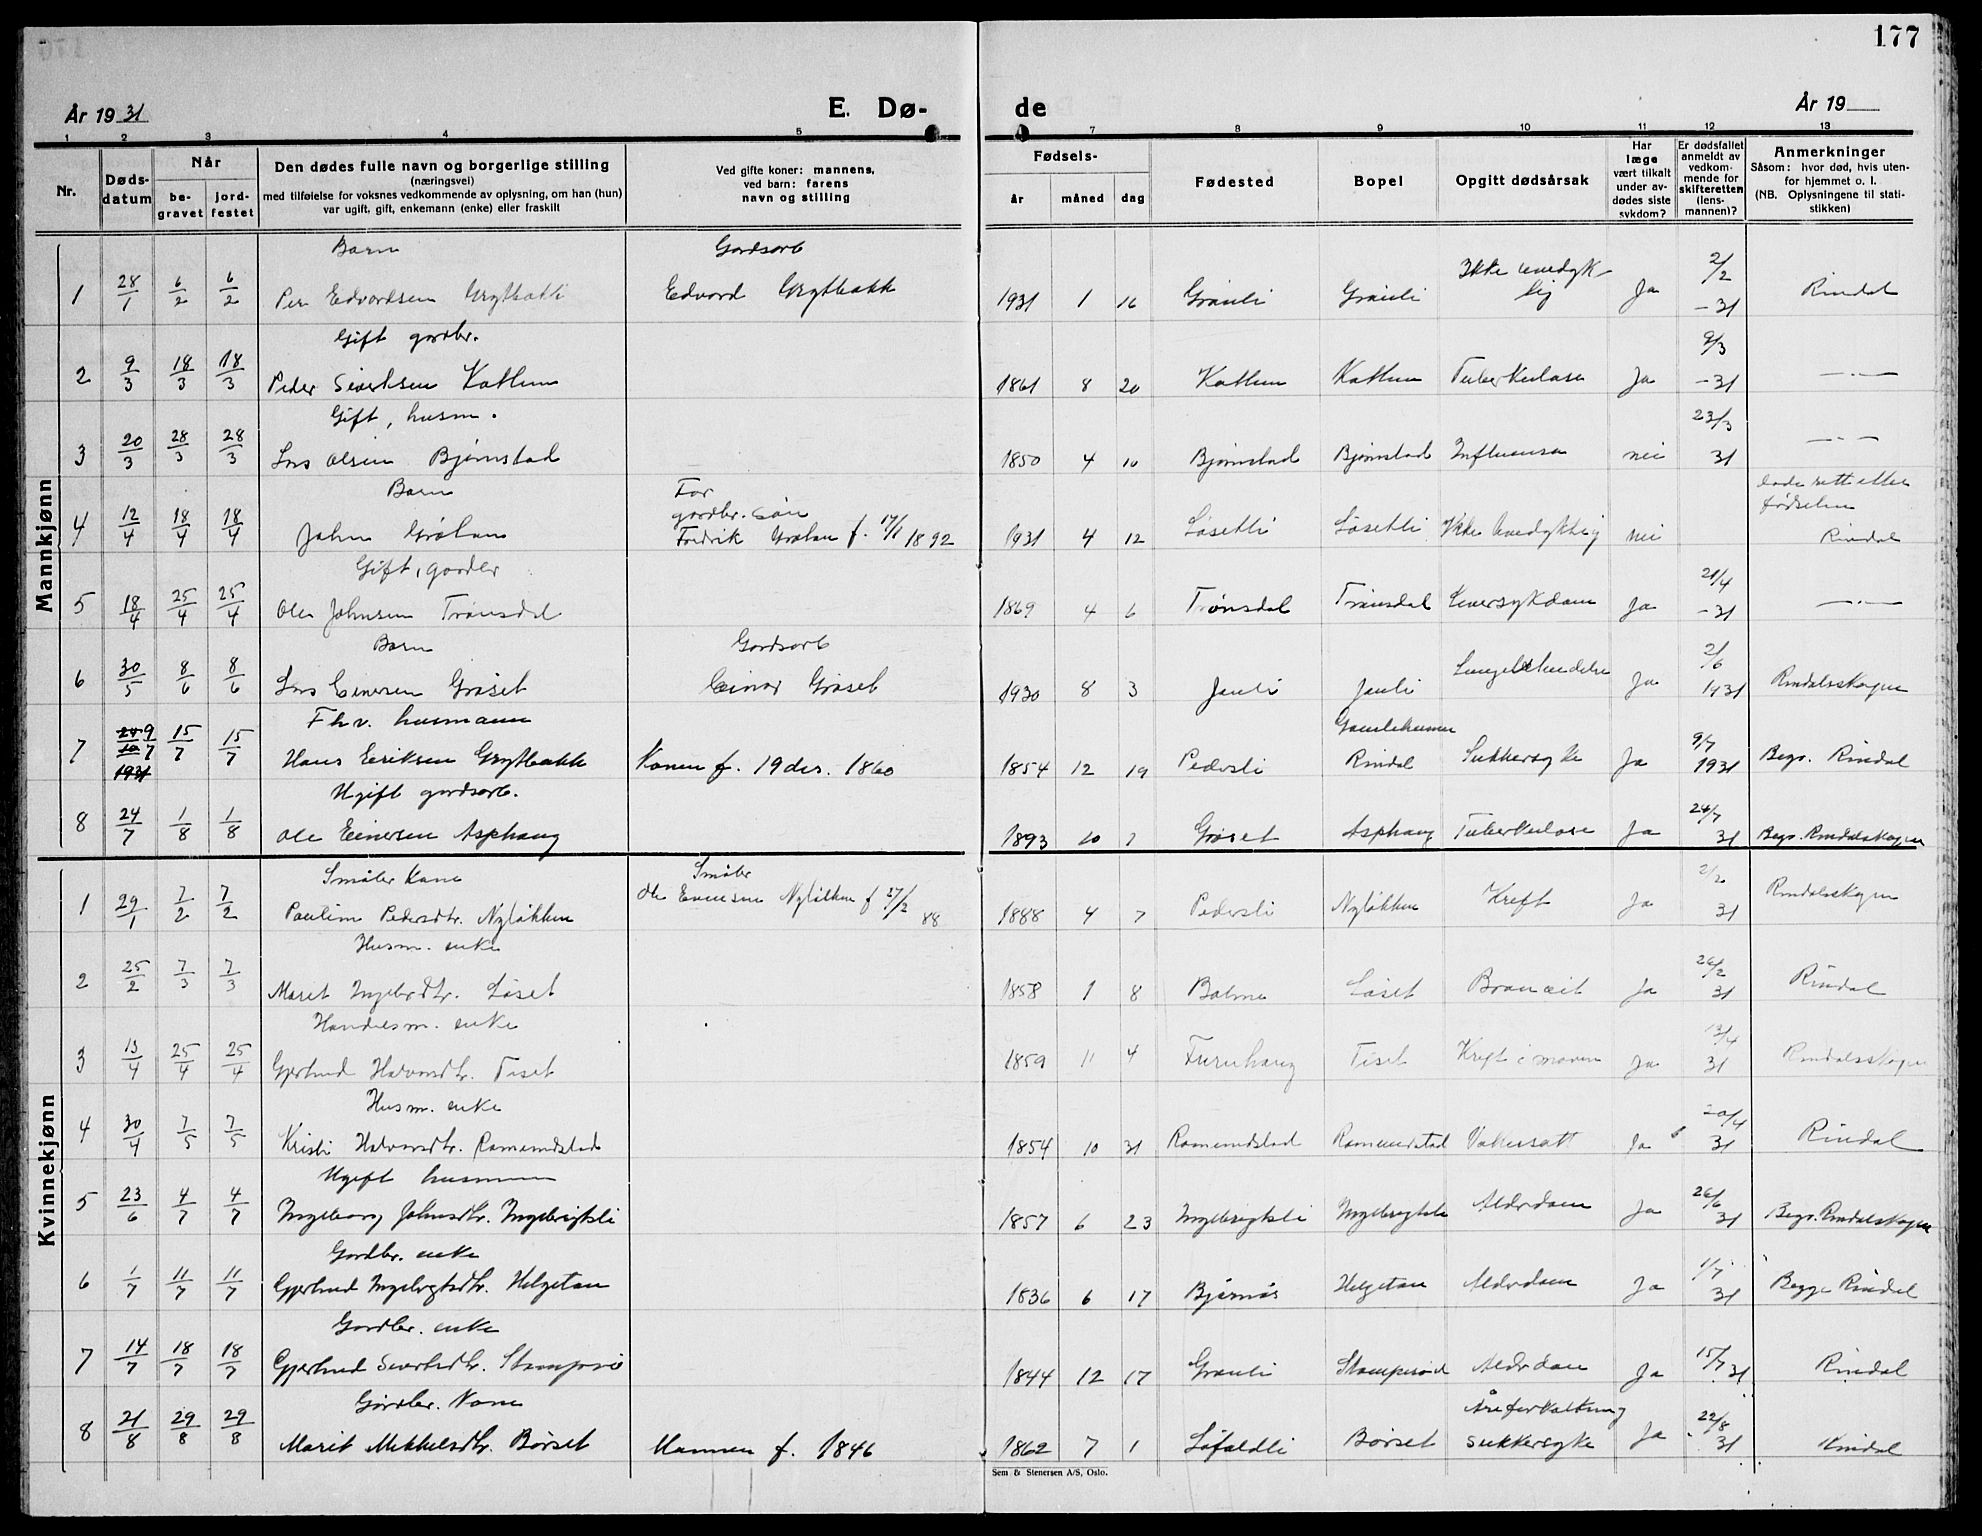 177
År 19 31
E. Dø-
de
År 19
1 2 3 4 5 7 8 9 10 11 12 13
Nr.
Døds-
datum
Når
be-
gravet
jord-
festet
Den dødes fulle navn og borgerlige stilling
(næringsvei)
med tilføielse for voksnes vedkommende av oplysning, om han (hun)
var ugift, gift, enkemann (enke) eller fraskilt
Ved gifte koner: mannens,
ved barn: farens
navn og stilling
Fødsels-
år måned dag
Fødested
Bopel
Opgitt dødsårsak
Har
læge
vært tilkalt
under av-
dødes siste
sykdom?
Er dødsfallet
anmeldt av
vedkom-
mende for
skifteretten
(lens-
mannen)?
Anmerkninger
Såsom: hvor død, hvis uten-
for hjemmet o. l.
(NB. Oplysningene til stati-
stikken)
Mannkjønn
Barn Gardsarb
1 28/1 6/2 6/2 Per Edvardsen Grytbakk Edvard Grytbakk 1931 1 16 Grønli Grønli Ja 2/2 -31 Rindal
Gift gardbr.
2 9/3 18/3 18/3 Peder Sivertsen Kattum 1861 8 20 Kattum Kattum Tuberkulose Ja 9/3 -31 — " —
Gift, husm.
3 20/3 28/3 28/3 Lars Olsen Bjørnstad 1850 4 10 Bjørnstad Bjørnstad Influensa nei 23/3 31 — " —
Barn Far
gardbr. søn
fødselen
4 12/4 18/4 18/4 John Fredrik f. 17/1 1892 1931 4 12 Løsetli Løsetli nei Rindal
Gift, gardbr
5 18/4 25/4 25/4 Ole Johnsen Trønsdal 1869 4 6 Trønsdal Trønsdal Leversykdom Ja 21/4 -31 — " —
Barn Gardsarb
6 30/5 8/6 8/6 Lars Einersen Grøset Einar Grøset 1930 8 3 Jønli Jønli Ja 2/6 1931 Rindalsskogen
Fhv. husmann
7 9/7 15/7 15/7 Hans Eriksen Grytbakk Konen f. 19 des. 1860 1854 12 19 Pedersli Rindal Sukkersyke Ja 9/7 1931 Begr. Rindal
Ugift gardsarb.
8 24/7 1/8 1/8 Ole Einersen Asphaug 1893 10 Grøset Asphaug Tuberkulose Ja 24/7 31 Begr. Rindalsskogen
Kvinnekjønn
Småbr kone Småbr
1 29/1 7/2 7/2 Pauline Pedersdtr. Nyløkken Ole Evensen Nyløkken f 27/2 88 1888 4 7 Pedersli Nyløkken Kreft Ja 2/2 31 Rindalsskogen
Husm. enke
2 25/2 7/3 7/3 Maret Ingebrdtr. Løset 1858 1 8 Bolme Løset Ja 26/2 31 Rindal
Handelsm. enke
3 13/4 25/4 25/4 Gjertrud Halvorsdtr. Tiset 1859 11 4 Furuhaug Tiset Kreft i maven Ja 13/4 31 Rindalsskogen
Husm. enke
4 30/4 7/5 7/5 Kristi Halvorsdtr. Romundstad 1854 10 31 Romundstad Romundstad Vattersott Ja 31 Rindal
Ugift
5 23/6 4/7 4/7 Ingeborg Johnsdtr. Ingebrigtsli 1857 6 23 Ingebrigtsli Ingebrigtsli Alderdom Ja 26/6 31 Begr. Rindalsskogen
Gardbr. enke
6 1/7 11/7 11/7 Gjertrud Ingebrigtsdtr. Helgetun 1836 6 17 Bjørnås Helgetun Alderdom Ja 1/7 31 Rindal
Gardbr. enke
7 14/7 18/7 18/7 Gjertrud Sivertsdtr. 1844 12 17 Grønli Alderdom Ja 15/7 31 Rindal
Gardbr. kone Åreforkalkning
8 21/8 29/8 29/8 Marit Mikkelsdtr. Børset Mannen f. 1846 1862 7 1 Løfaldli Børset sukkersyke Ja 22/8 31 Rindal
Sem & Stenersen A/S, Oslo.